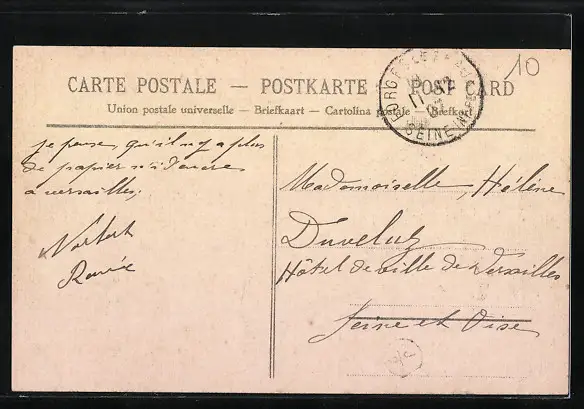 CARTE POSTALE — POSTKARTE — POST CARD
Union postale universelle — Briefkaart — Cartolina postale — Brefkort
10
SEINE
je pense qu'il n'y a plus
de papier ni d'encre
a versailles,
Renée
Mademoiselle, Hélène
Hôtel de ville de Versailles
Seine et Oise